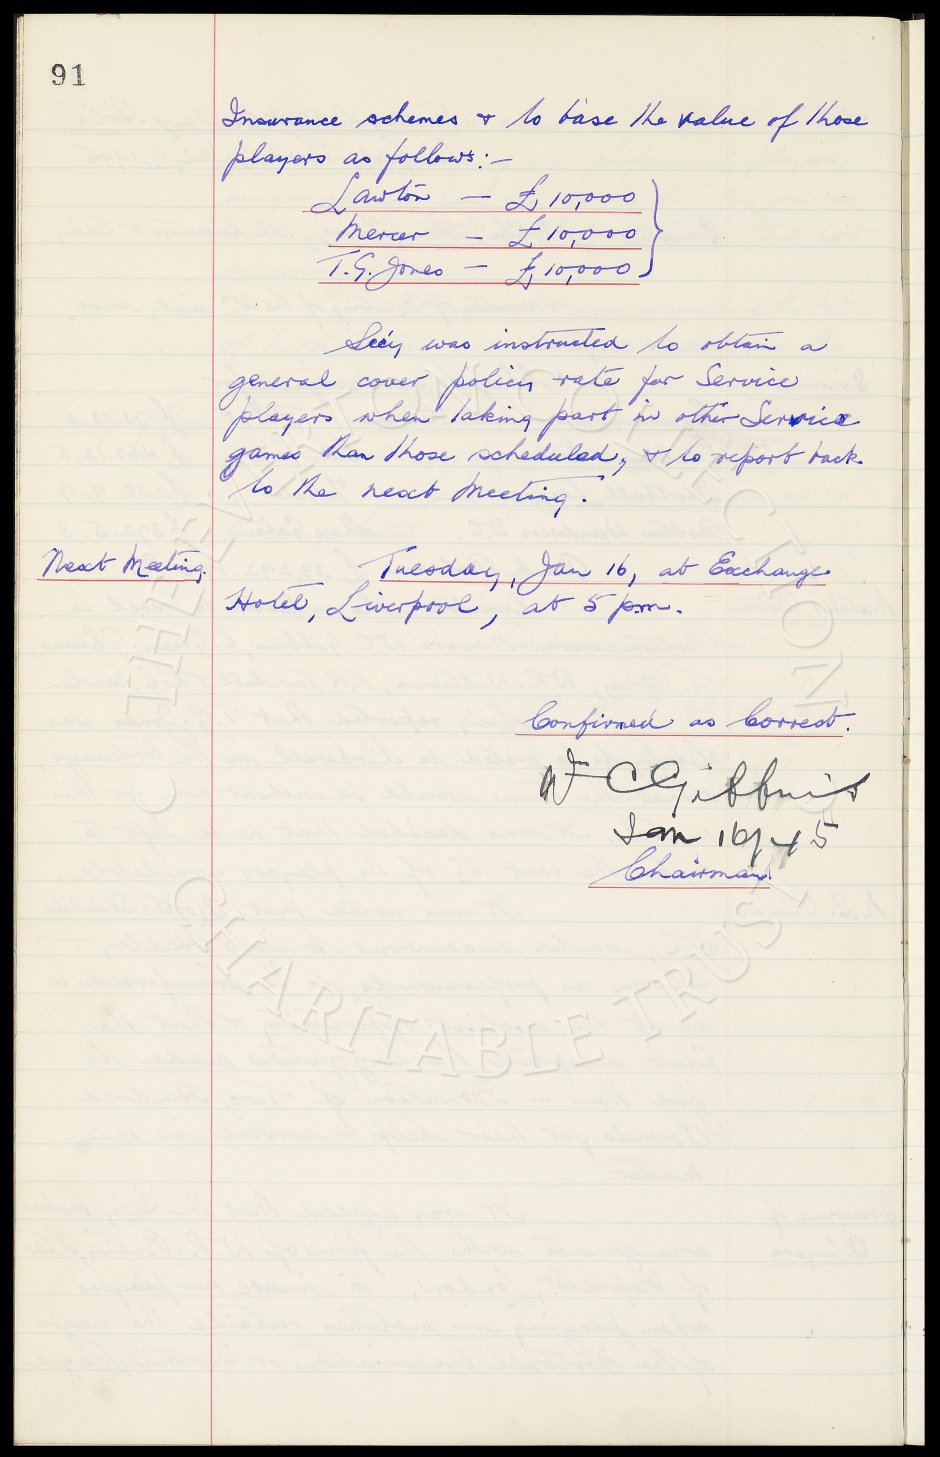 91
Insurance schemes & to base the value of those
players as follows:-
Lawton — £10,000
Mercer — £10,000
T.G. Jones — £10,000
Sec'y was instructed to obtain a
general cover policy rate for Service
players when taking part in other Service
games than those scheduled, & to report back
to the next Meeting.
Next Meeting.
Tuesday, Jan 16, at Exchange
Hotel, Liverpool, at 5 p.m.
Confirmed as Correct.
Wm C Gibbins
Jan 16/45
Chairman
© THE EVERTON COLLECTION
CHARITABLE TRUST